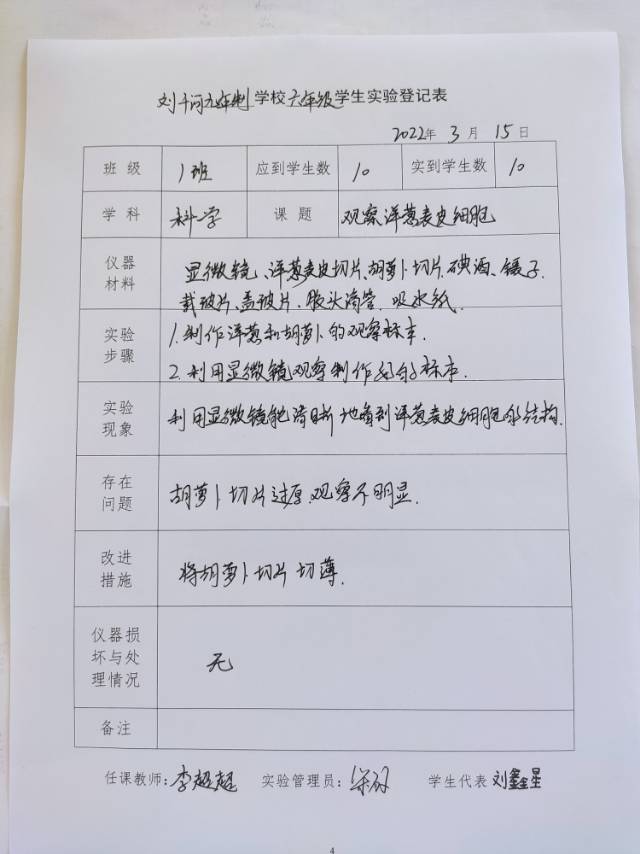 刘千河九年制学校六年级学生实验登记表
2022年 3月 15日
班级 1班 应到学生数 10 实到学生数 10
学科 科学 课题 观察洋葱表皮细胞
仪器材料 显微镜、洋葱表皮切片、胡萝卜切片、碘酒、镊子、
载玻片、盖玻片、胶头滴管、吸水纸.
实验步骤 1.制作洋葱和胡萝卜的观察标本.
2.利用显微镜观察制作好的标本.
实验现象 利用显微镜能清晰地看到洋葱表皮细胞的结构.
存在问题 胡萝卜切片过厚.观察不明显.
改进措施 将胡萝卜切片切薄.
仪器损坏与处理情况 无
备注
任课教师:李超超 实验管理员: 学生代表 刘鑫星
4